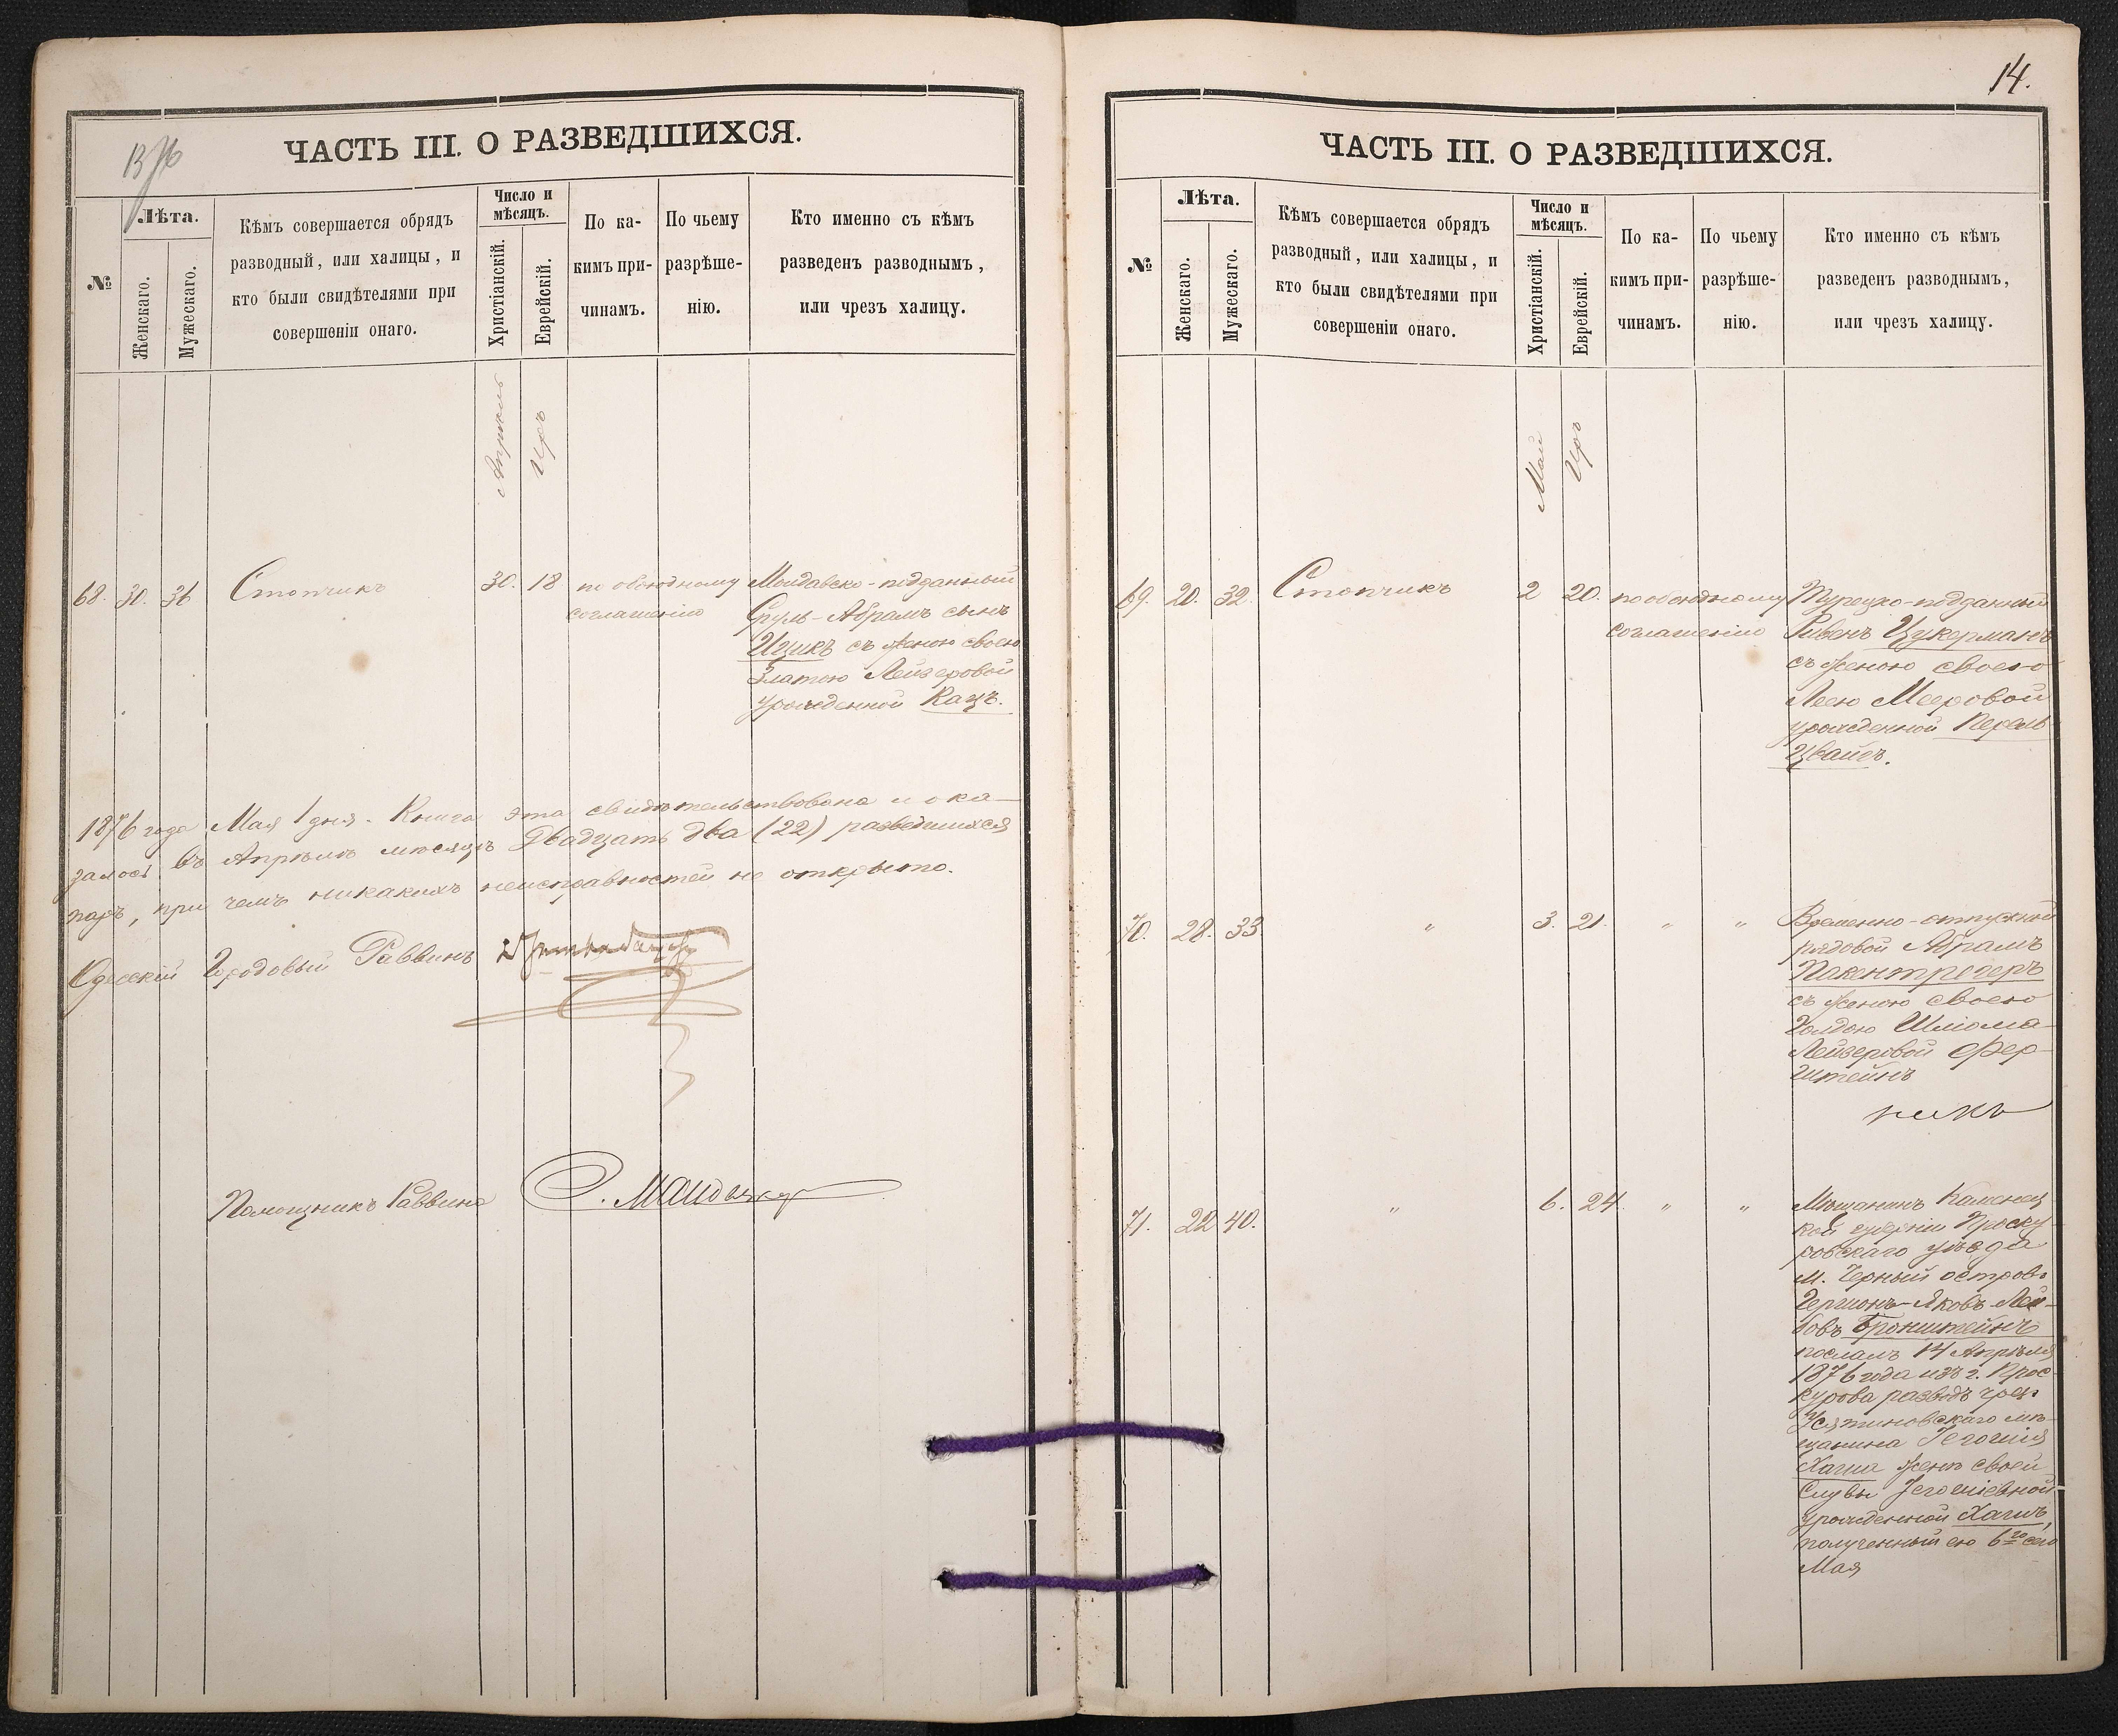 1876
ЧАСТЬ III. О РАЗВЕДШИХСЯ.
№
Лѣта.
Женскаго.
Мужескаго.
Кѣмъ совершается обрядъ
разводный, или халицы, и
кто были свидѣтелями при
совершеніи онаго.
Число и
мѣсяцъ.
Христіанскій.
Еврейскій.
По ка-
кимъ при-
чинамъ.
По чьему
разрѣше-
нію.
Кто именно съ кѣмъ
разведенъ разводнымъ,
или чрезъ халицу.
Апрѣль
Иръ
68. 30. 36 Стопчикъ 30. 18 по обоюдному
соглашенію
Молдавско-подданный
Сруль-Абрамъ сынъ
Ицикъ съ женою своею
Златою Лейзеровой
урожденной Кацъ.
1876 года Мая 1 дня. Книга эта свидѣтельствована и ока-
залось въ Апрѣлѣ мѣсяцѣ Двадцать два (22) разведшихся
паръ, при чемъ никакихъ неисправностей не открыто.
Одесскій Городовый Раввинъ
Помощникъ Раввина
14.
ЧАСТЬ III. О РАЗВЕДШИХСЯ.
№
Лѣта.
Женскаго.
Мужескаго.
Кѣмъ совершается обрядъ
разводный, или халицы, и
кто были свидѣтелями при
совершеніи онаго.
Число и
мѣсяцъ.
Христіанскій.
Еврейскій.
По ка-
кимъ при-
чинамъ.
По чьему
разрѣше-
нію.
Кто именно съ кѣмъ
разведенъ разводнымъ,
или чрезъ халицу.
Май
Иръ
69. 20. 32. Стопчикъ 2 20. по обоюдному
соглашенію
Турецко-подданный
Рувенъ Цукерманъ
съ женою своею
Леею Мееровой
урожденной Перель-
Цвайгъ.
70. 28. 33. " 3. 21. " "
Временно-отпускной
рядовой Абрамъ
Пакентрегеръ
съ женою своею
Голдою Шліома-
Лейзеровой Фер-
штейнъ
71. 22 40. " 6. 24. " "
Мѣщанинъ Каменец
кой губерніи Проску-
ровскаго уѣзда
м. Черный островъ
Гершонъ-Яковъ Лей-
бовъ Бронштейнъ
послалъ 14 Апрѣля
1876 года изъ г. Прос-
курова разводъ чрезъ
мѣ-
щанина
Хагиа женѣ своей
урожденной Хагиъ,
полученный ею 6го сего
Мая